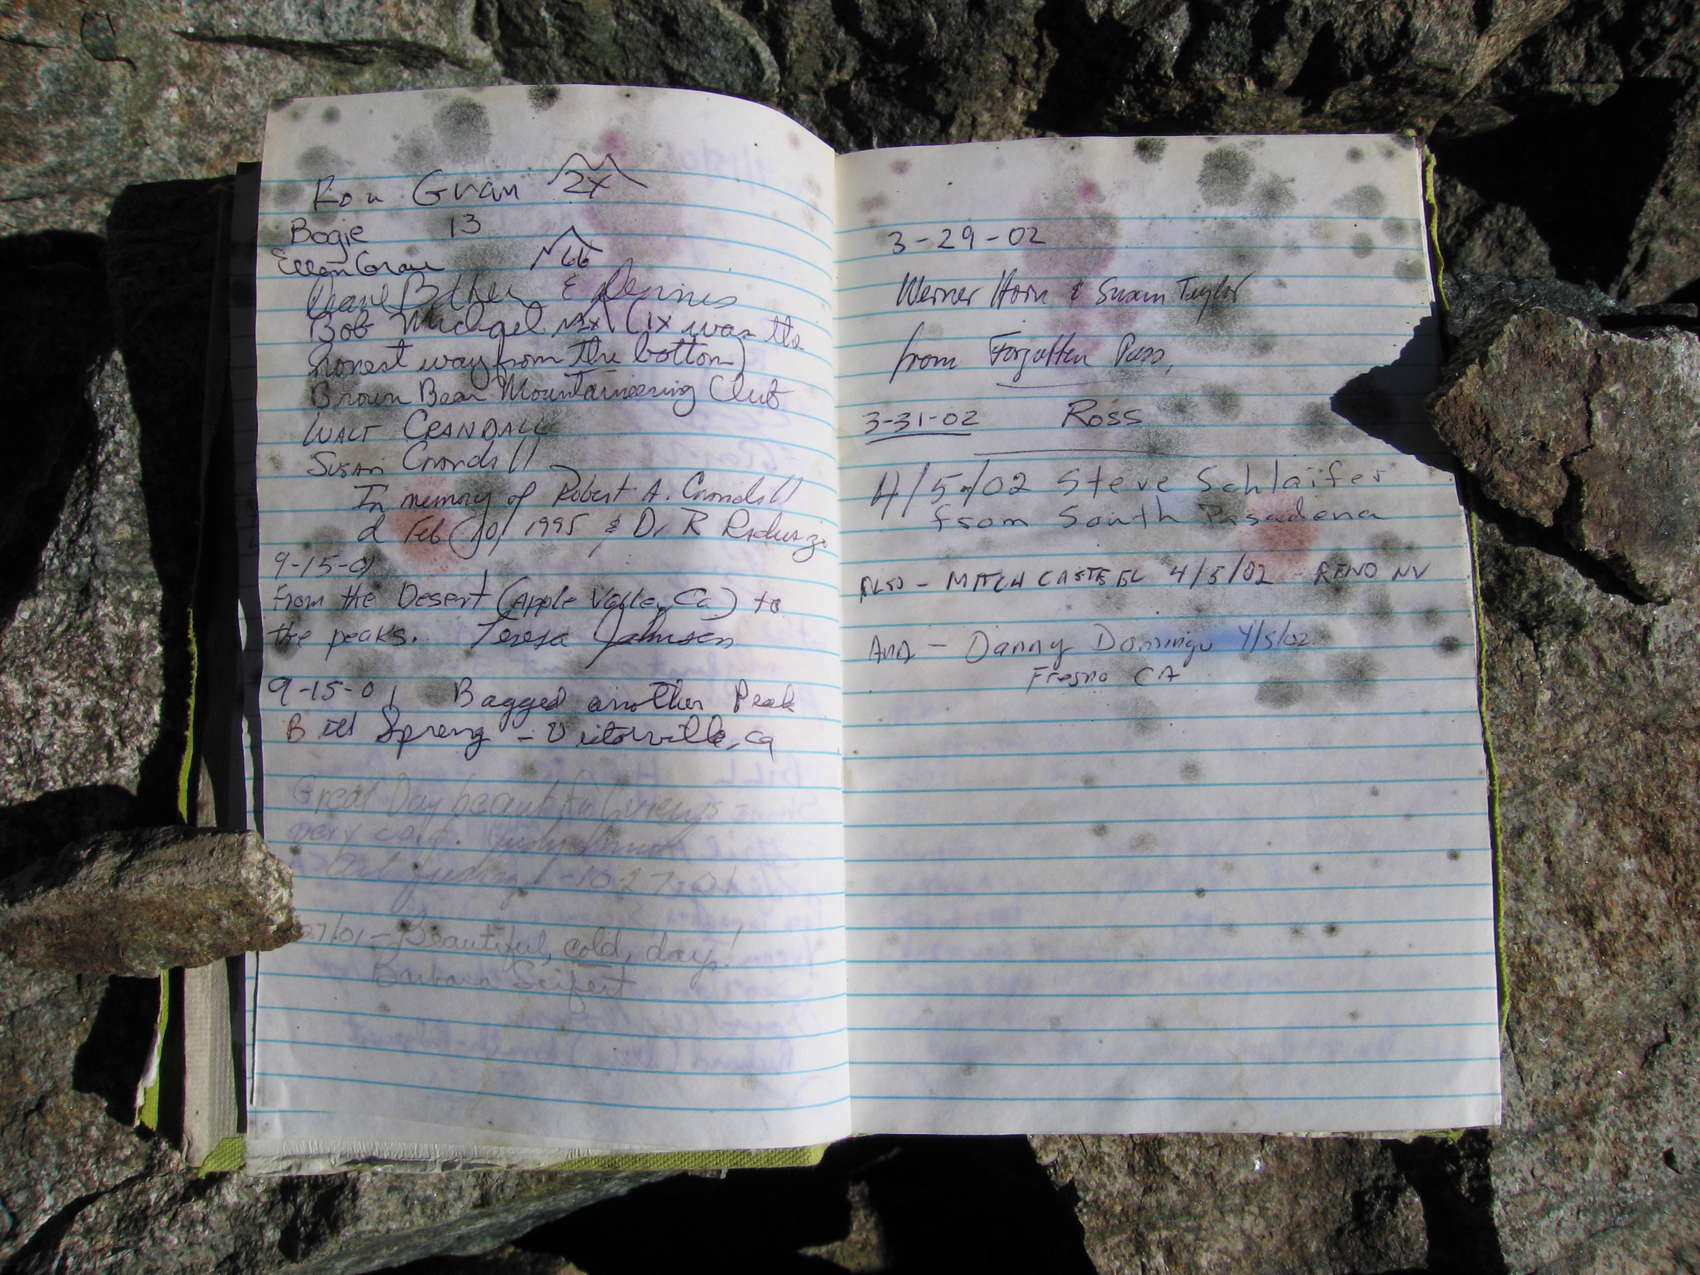 Ron Gran 2x
Bogie 13
Ellen Gran 66
& Dennis
Bob Michael 2x (1x was the
honest way from the bottom)
Brown Bear Mountaineering Club
WALT CRANDALL
Susan Crandall
In memory of Robert A. Crandall
d Feb 1995 & Dr R
9-15-01
From the Desert (Apple Valley, Ca.) to
the peaks. Teresa Johnson
9-15-01 Bagged another Peak
Bill Spreng - Victorville, Ca
Great Day beautiful views
very
10-27-01
27/01 - Beautiful, cold, day!
Barbara Seifert
3-29-02
Werner Horn & Susan Taylor
from Forgotten Pass,
3-31-02 Ross
4/5/02 Steve Schlaifer
from South Pasadena
ALSO - MITCH CASTEEL 4/5/02 RENO NV
AND - Danny Domingo 4/5/02
Fresno CA